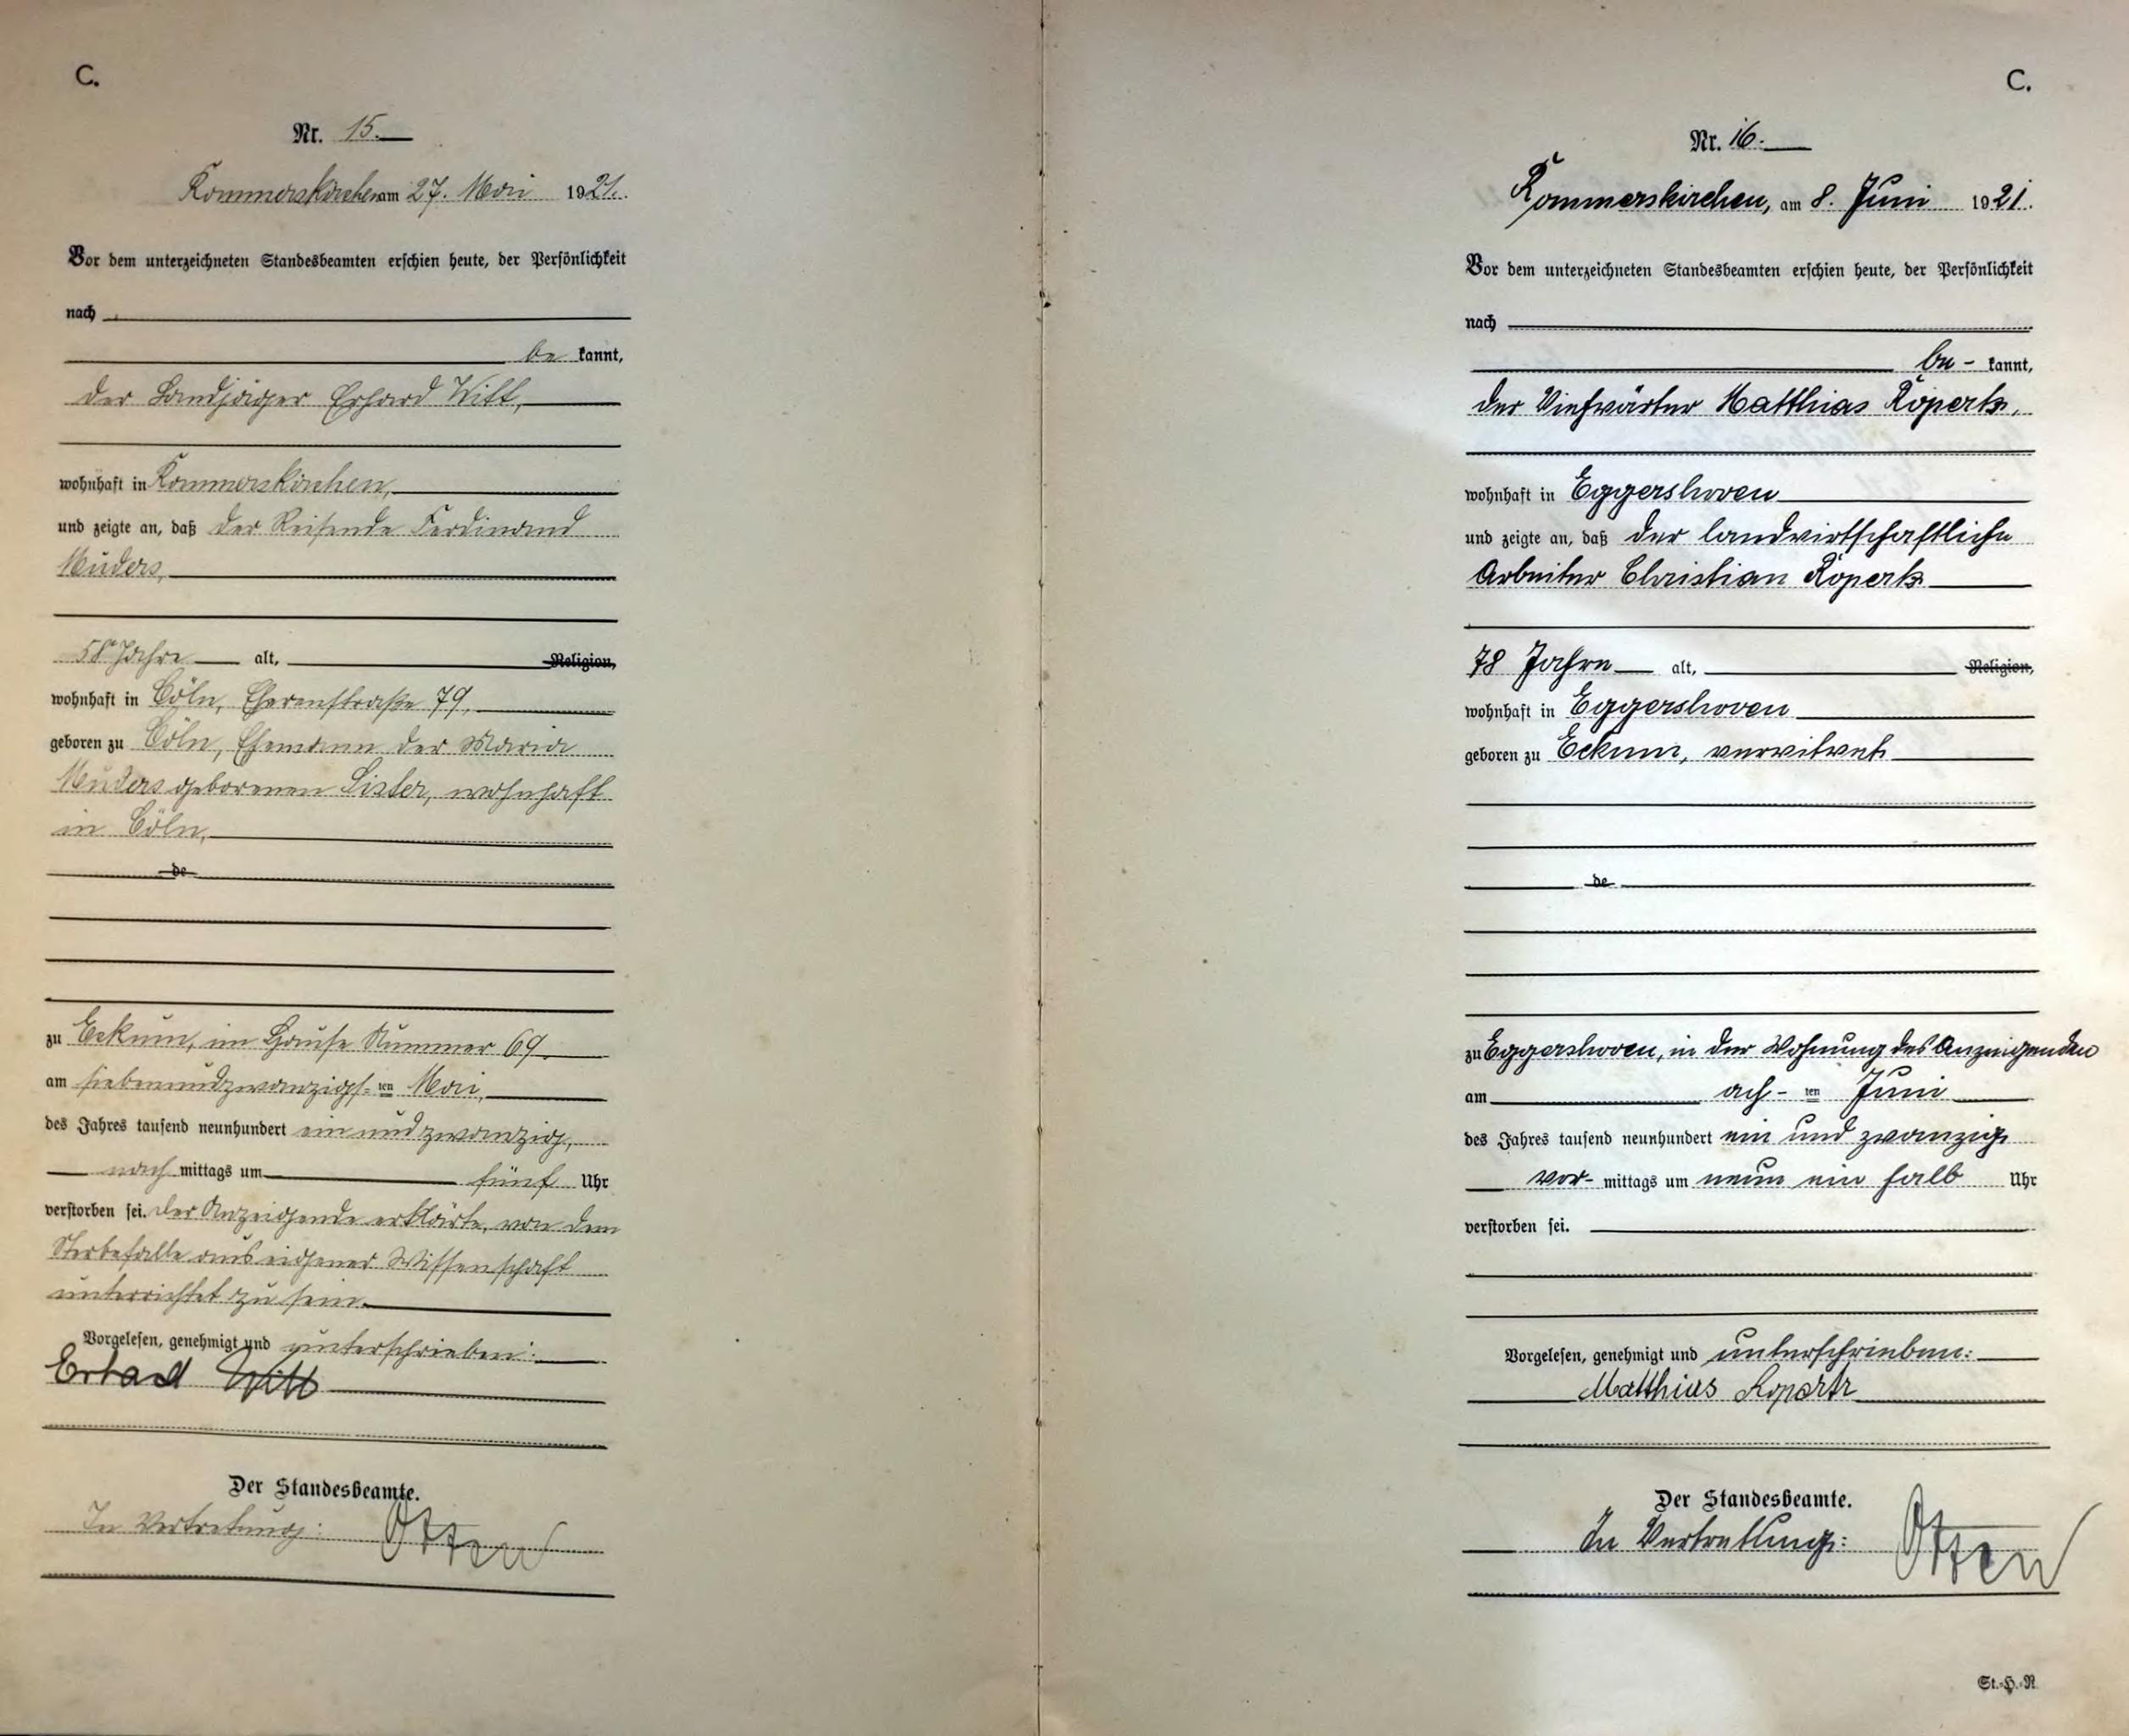 C.
Nr. 15.
Rommerskirchen am 27. Mai 1921.
Vor dem unterzeichneten Standesbeamten erschien heute, der Persönlichkeit
nach
be kannt,
der Landjäger Erhard Witt,
wohnhaft in Rommerskirchen,
und zeigte an, daß der Reisende Ferdinand
Müders,
58 Jahre alt, Religion,
wohnhaft in Cöln, Ehrenstraße 79,
geboren zu Cöln, Ehemann der Maria
Müders geborenen Lister, wohnhaft
in Cöln,
de
zu Eckum, im Hause Nummer 69.
am siebenundzwanzigs- ten Mai,
des Jahres tausend neunhundert ein und zwanzig,
nach mittags um fünf Uhr
verstorben sei. Der Anzeigende erklärte, von dem
Sterbefalle aus eigener Wissenschaft
unterrichtet zu sein.
Vorgelesen, genehmigt und unterschrieben:
Erhard Witt
Der Standesbeamte.
In Vertretung: Otten
C.
Nr. 16.
Rommerskirchen, am 8. Juni 1921.
Vor dem unterzeichneten Standesbeamten erschien heute, der Persönlichkeit
nach
be- kannt,
der Viehwärter Matthias Röpertz,
wohnhaft in Eggershoven
und zeigte an, daß der landwirtschaftliche
Arbeiter Christian Röpertz
78 Jahre alt, Religion,
wohnhaft in Eggershoven
geboren zu Eckum, verwitwet
de
zu Eggershoven, in der Wohnung des Anzeigenden
am ach- ten Juni
des Jahres tausend neunhundert ein und zwanzig
vor- mittags um neun ein halb Uhr
verstorben sei.
Vorgelesen, genehmigt und unterschrieben:
Matthias Ropertz
Der Standesbeamte.
In Vertretung: Otten
St.-H.-R